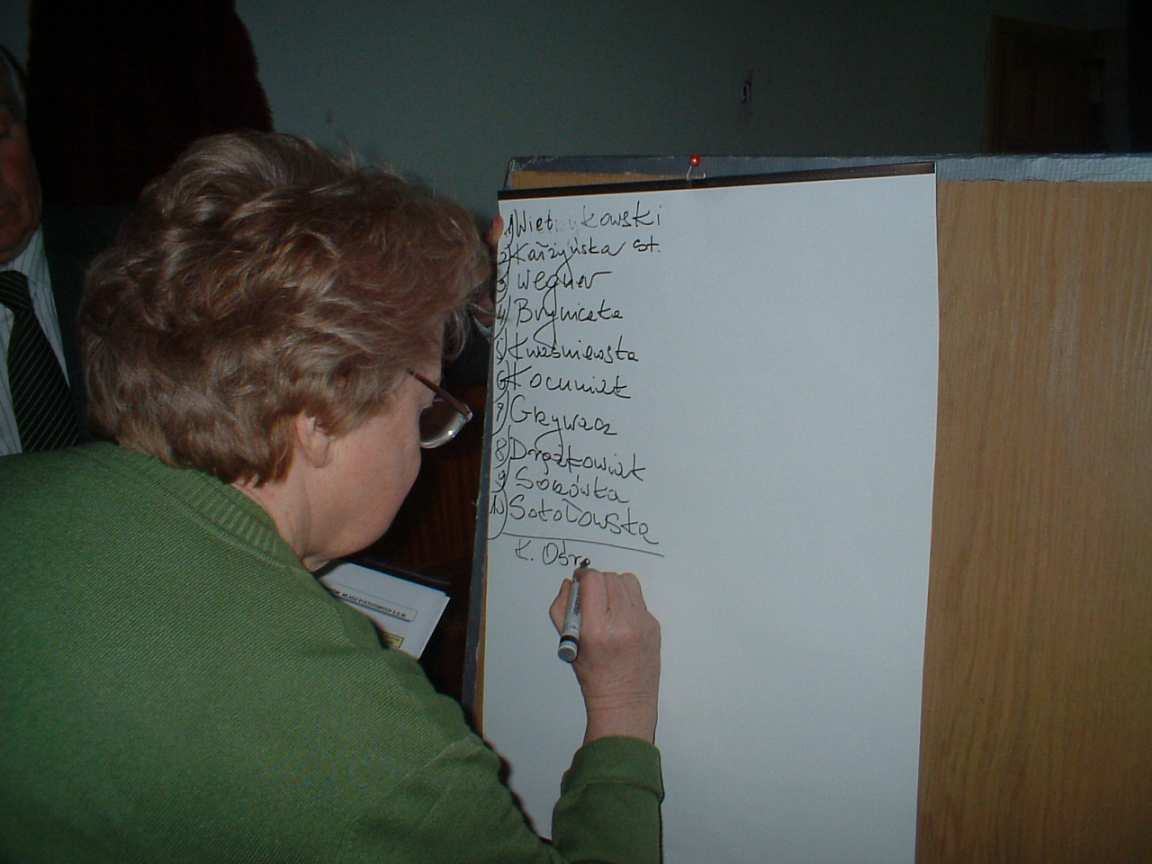 1) Wietrzykowski
2) Karzyńska st.
3) Wegner
4) Brynicka
5) Kwaśniewska
6) Kocuniak
7) Grywacz
8) Drążkowiak
9) Sobówka
10) Sokołowska
K. Ostr